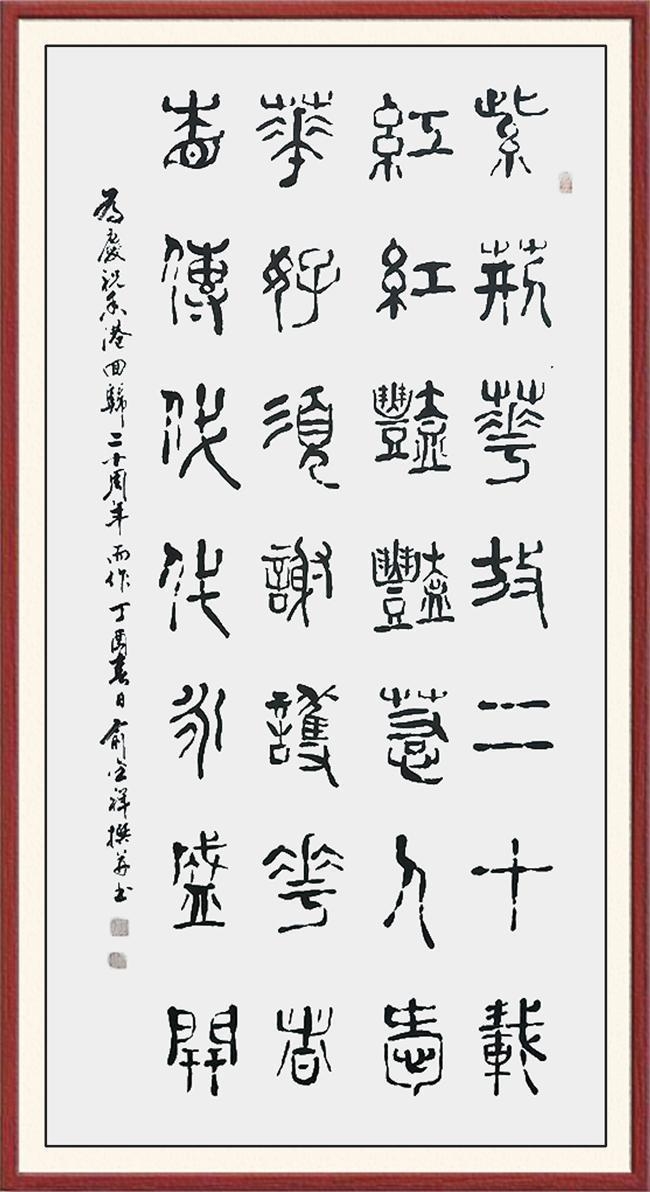 紫荊華放二十載
紅紅豔豔惹人愛
華好須謝護花者
香傳代代永盛開
為慶祝香港回歸二十周年而作丁酉春日俞祥撰并书